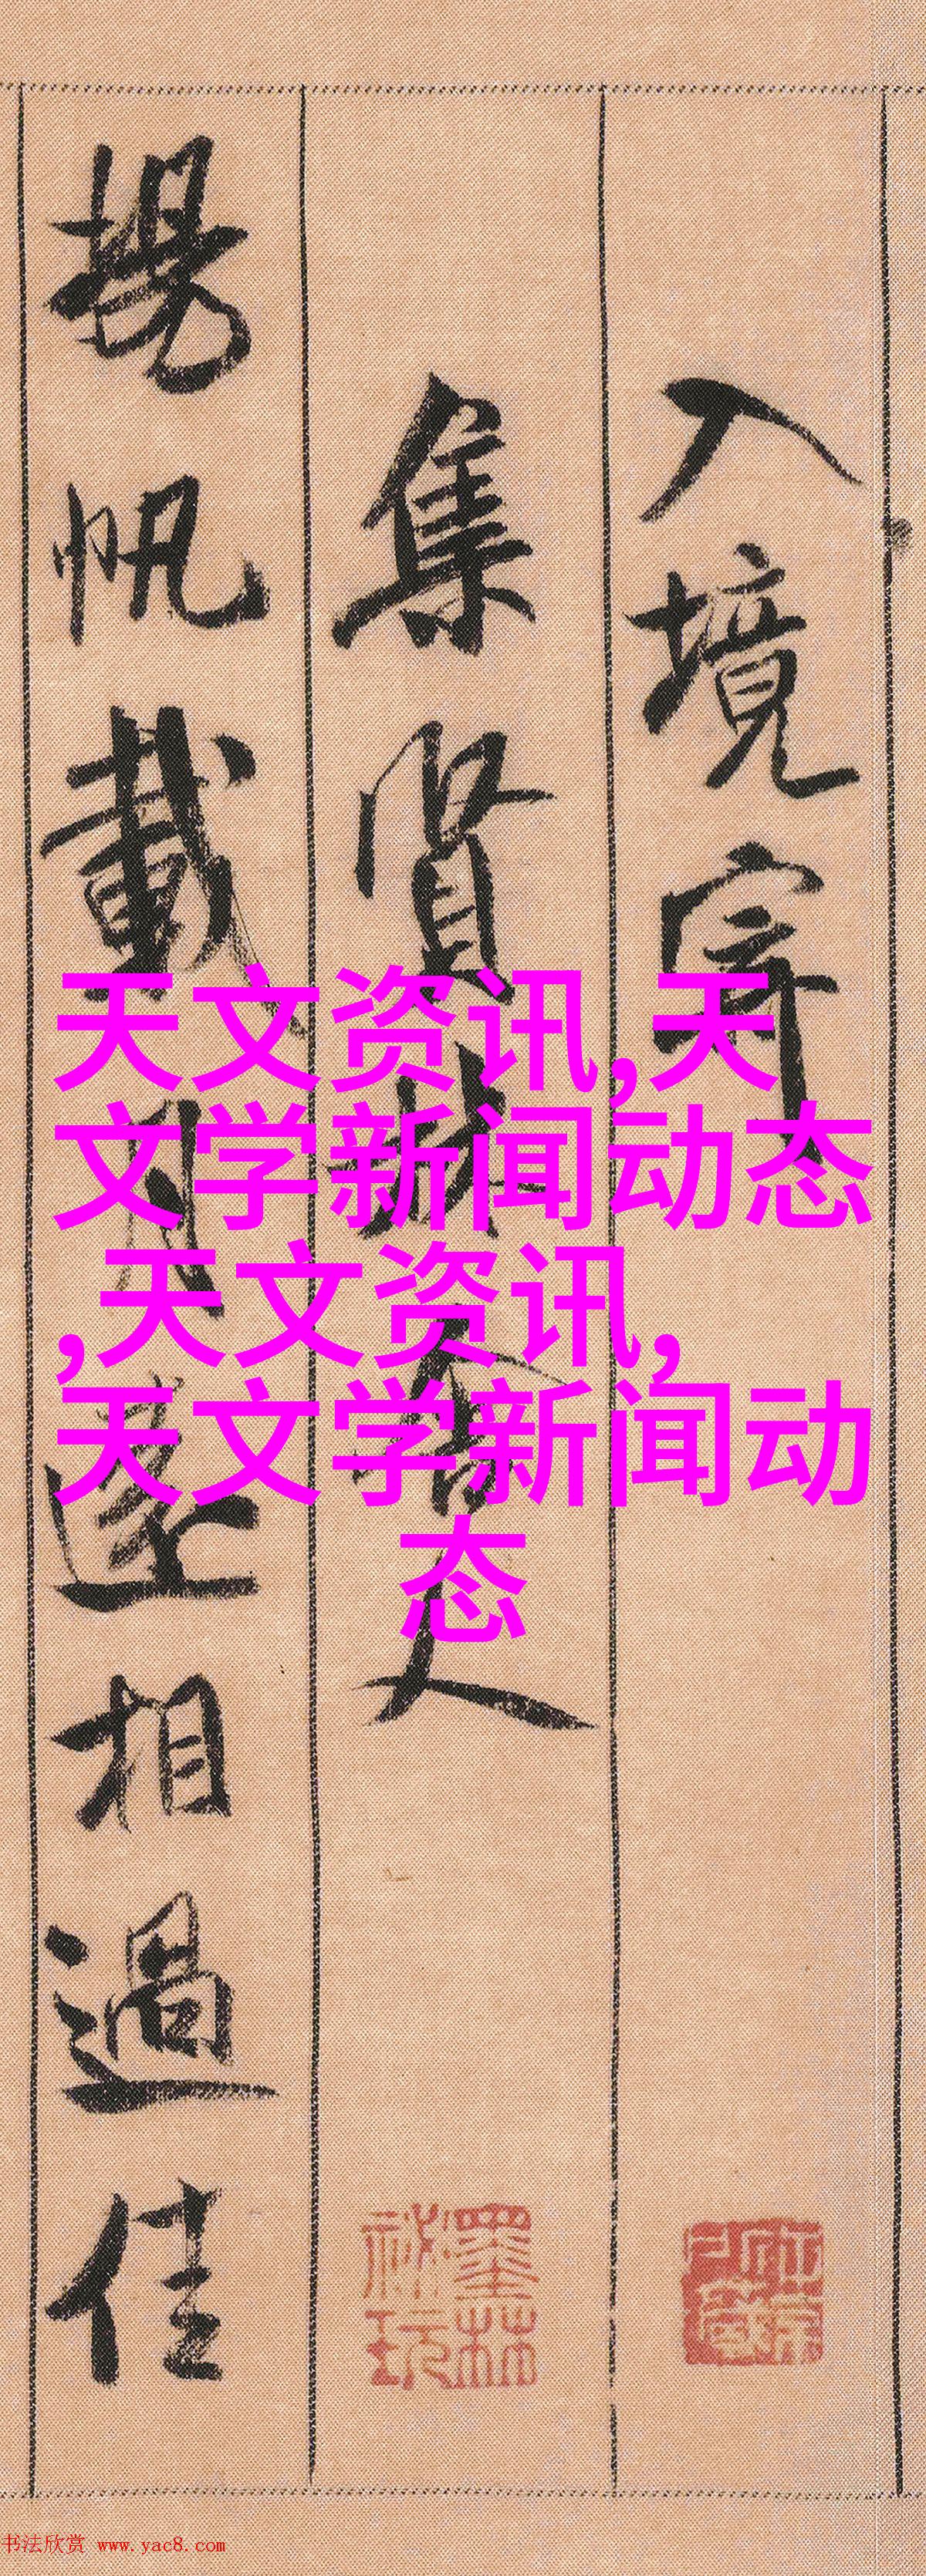 入境寄
集賢林舍人
揚帆載月遠相過佳
天文资讯,天
文学新闻动态
,天文资讯,
天文学新闻动
态
墨林
祕玩
书法欣赏 www.yac8.com